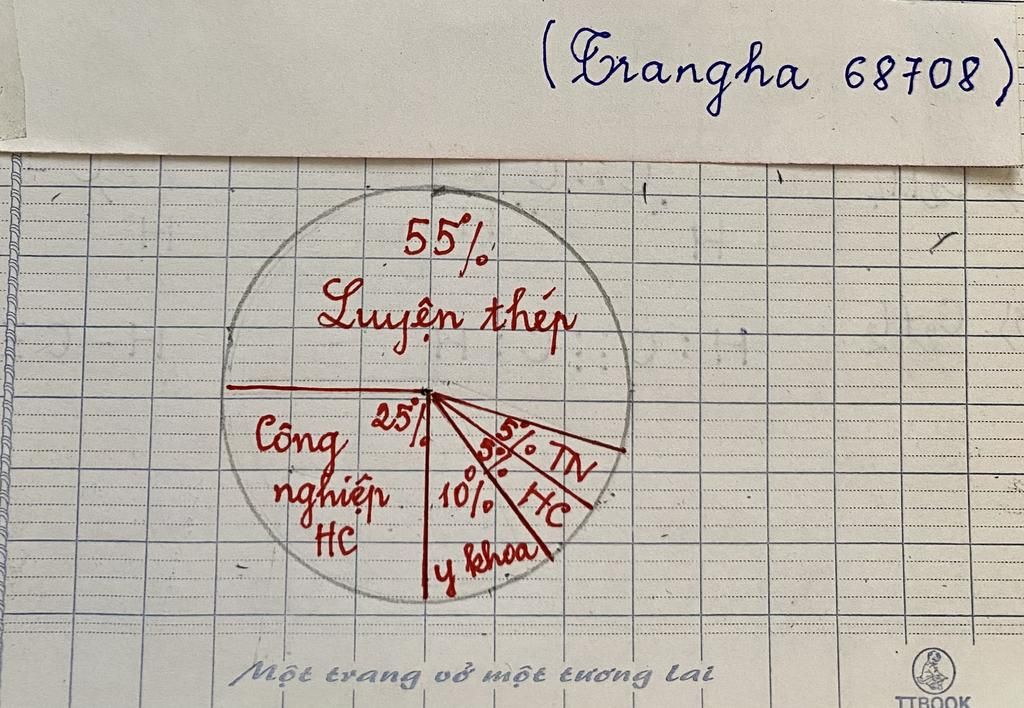 (Trangha 68708)
55%
Luyện thép
25%
Công
nghiệp
HC
10%
y khoa
5%
HC
5%
TN
Một trang vở một tương lai
TTBOOK